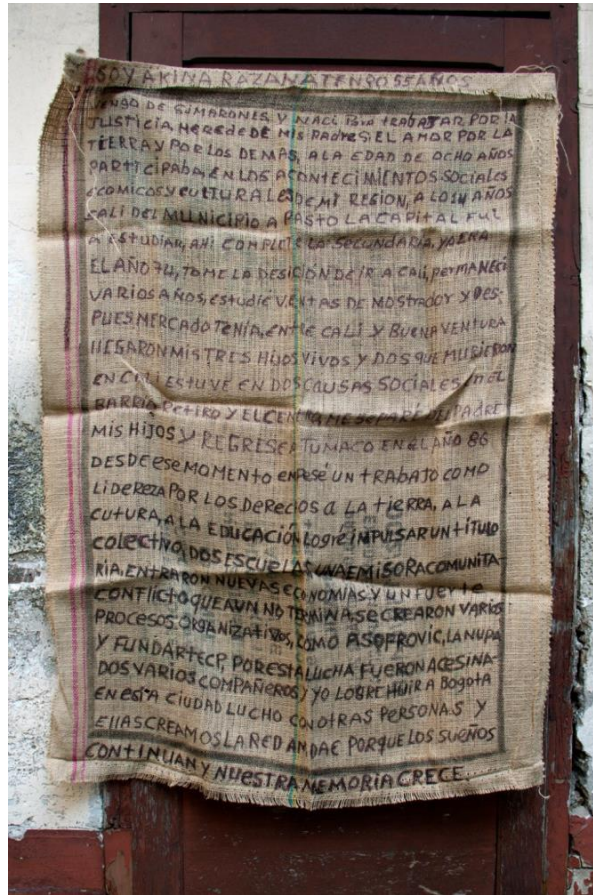 SOY AKINA RAZANA TENGO 55 AÑOS
VENGO DE SIMARONES Y NACI PARA TRABAJAR POR LA
JUSTICIA HEREDE DE MIS PADRES EL AMOR POR LA
TIERRA Y POR LOS DEMAS, A LA EDAD DE OCHO AÑOS
PARTICIPABA EN LOS ACONTECIMIENTOS SOCIALES
ECOMICOS Y CULTURALES DE MI REGION, A LOS 14 AÑOS
SALI DEL MUNICIPIO A PASTO LA CAPITAL FUI
A ESTUDIAR, AHI COMPLETE LA SECUNDARIA, YA ERA
EL AÑO 74, TOME LA DESICION DE IR A CALI, PERMANECI
VARIOS AÑOS, ESTUDIE VENTAS DE MOSTRADOR Y DES-
PUES MERCADOTENIA, ENTE CALI Y BUENAVENTURA
LLEGARON MIS TRES HIJOS VIVOS Y DOS QUE MURIERON
EN CALI ESTUVE EN DOS CAUSAS SOCIALES, EN EL
BARRIO RETIRO Y EL ME SEPARÉ DEL PADRE
MIS HIJOS Y REGRESE A TUMACO EN EL AÑO 86
DESDE ESE MOMENTO EMPESÉ UN TRABAJO COMO
LIDEREZA POR LOS DERECIOS A LA TIERRA, A LA
CUTURA, A LA EDUCACIÓN LOGRE IMPULSAR UN TITULO
COLECTIVO, DOS ESCUELAS, UNA EMISORA COMUNITA-
RIA, ENTRARON NUEVAS ECONOMIAS Y UN FUERTE
CONFLICTO QUE AUN NO TERMINA, SE CREARON VARIOS
PROCESOS ORGANIZATIVOS, COMO ASOFROVIC, LA NUPA
Y FUNDARTECP, POR ESTA LUCHA FUERON ACESINA-
DOS VARIOS COMPAÑEROS, Y YO LOGRE HUIR A BOGOTA
EN ESTA CIUDAD LUCHO CON OTRAS PERSONAS Y
ELLAS CREAMOS LA RED ANDAE PORQUE LOS SUEÑOS
CONTINUAN Y NUESTRA MEMORIA CRECE...